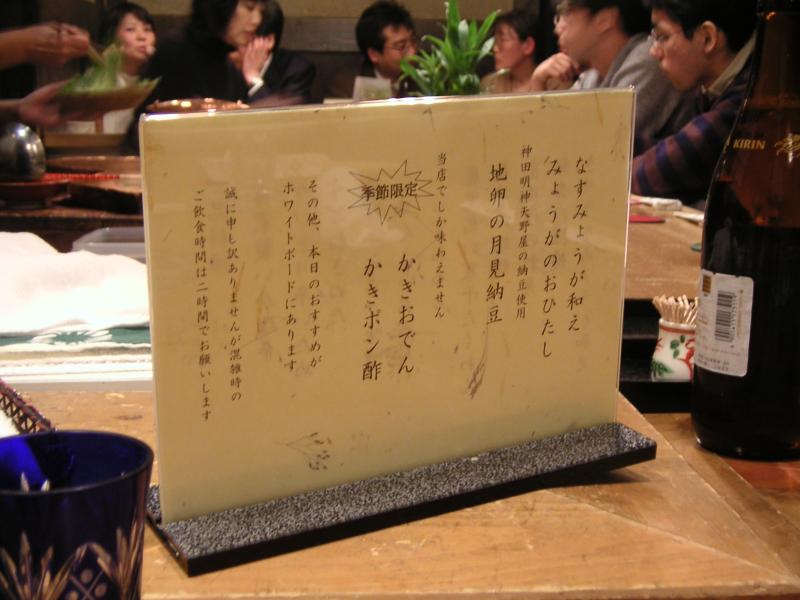 なすみょうが和え
みょうがのおひたし
神田明神天野屋の納豆使用
地卵の月見納豆
当店でしか味わえません
季節限定
かきおでん
かきポン酢
その他、本日のおすすめが
ホワイトボードにあります
誠に申し訳ありませんが混雑時の
ご飲食時間は二時間でお願いします
KIRIN